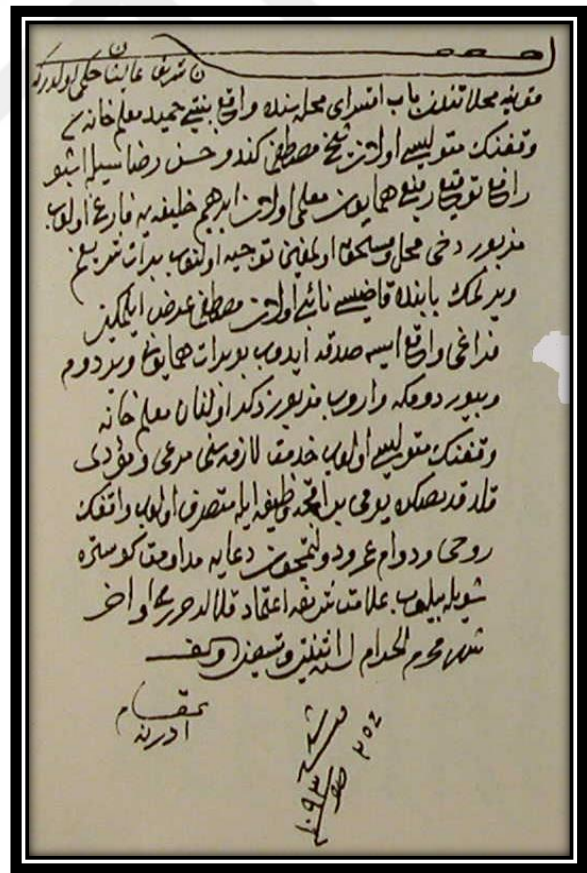 نشان شریف عالیشان حکمی اولدرکه
قونیه محلاتندن باب اقسرای محله سنده واقع حمید معلم خانه سی
وقفنک متولیسی اولان شیخ مصطفی کندو حسن رضاسیله اشبو
رافع توقیع رفیع همایون معلمی اولان ابرهیم خلیفه یه فارغ اولوب
مزبور دخی محل ومستحق اولمغین توجیه اولنوب برات شریفم
ویرلمک بابنده قاضیسی نائبی اولان مصطفی عرض ایلمکین
فراغی واقع ایسه صدقه ایدوب بو برات همایونی ویردوم
وبیوردومکه واروب مزبور ذکر اولنان معلم خانه
وقفنک متولیسی اولوب خدمت لازمه سنی مرعی ومؤدی
قلدقدنصکره یومی بر اقچه وظیفه ایله متصرف اولوب واقفک
روحی ودوام عمر ودولتمچون دعایه مداومت کوستره
شویله بیلوب علامت شریفه اعتماد قلالر تحریرا فی اواخر
شهر محرم الحرام لسنه اثنین وتسعین والف
بمقام
ادرنه
١٠٩٣
٢٥٤